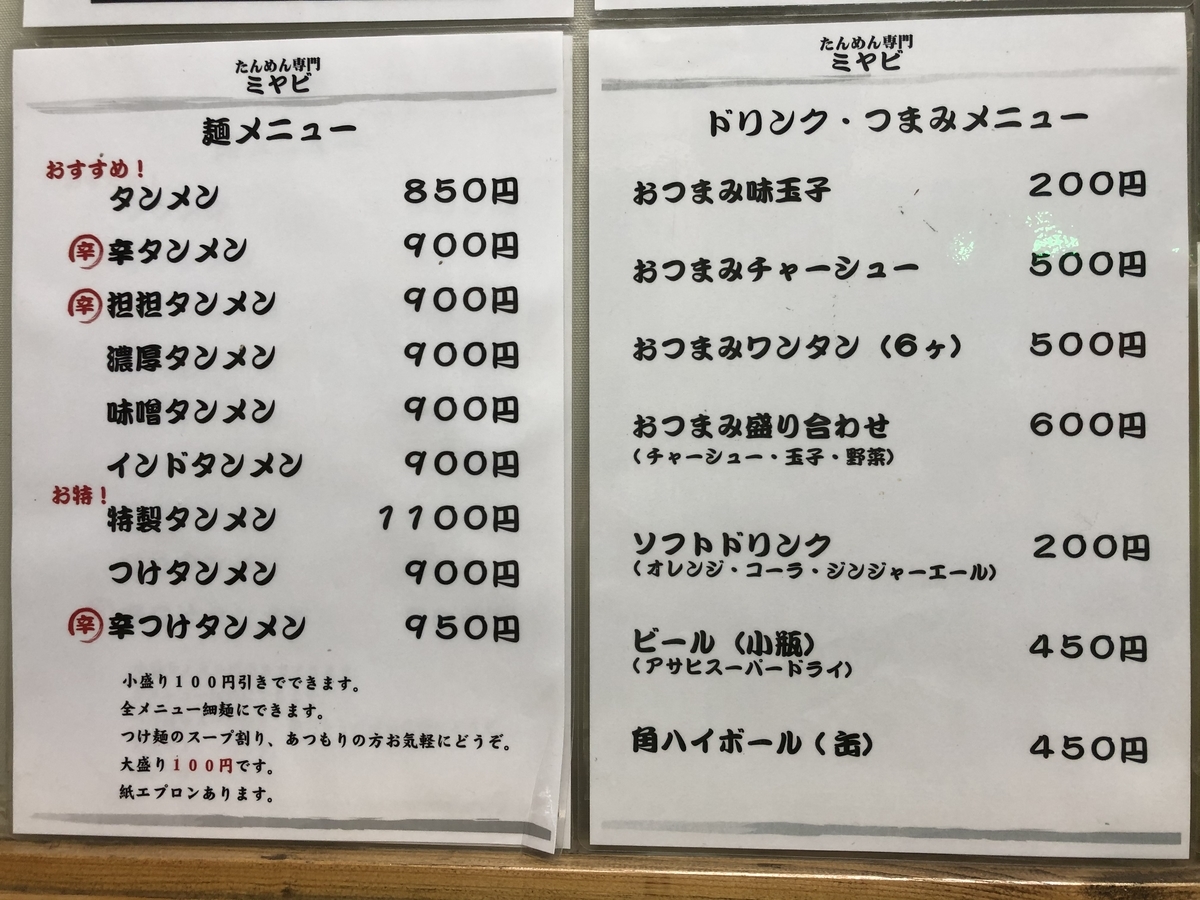 たんめん専門
ミヤビ
麺メニュー
おすすめ!
タンメン 850円
辛 辛タンメン 900円
辛 担担タンメン 900円
濃厚タンメン 900円
味噌タンメン 900円
インドタンメン 900円
お特!
特製タンメン 1100円
つけタンメン 900円
辛 辛つけタンメン 950円
小盛り100円引きでできます。
全メニュー細麺にできます。
つけ麺のスープ割り、あつもりの方お気軽にどうぞ。
大盛り100円です。
紙エプロンあります。
たんめん専門
ミヤビ
ドリンク・つまみメニュー
おつまみ味玉子 200円
おつまみチャーシュー 500円
おつまみワンタン(6ヶ) 500円
おつまみ盛り合わせ 600円
(チャーシュー・玉子・野菜)
ソフトドリンク 200円
(オレンジ・コーラ・ジンジャーエール)
ビール(小瓶) 450円
(アサヒスーパードライ)
角ハイボール(缶) 450円